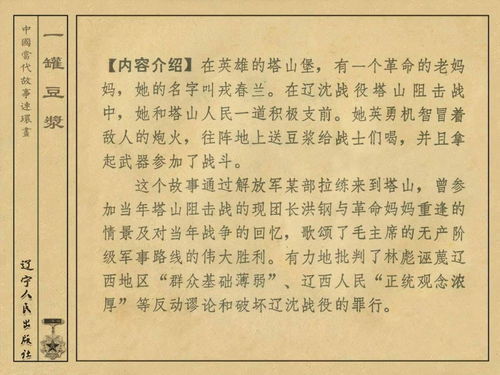 一罐豆浆
中國當代故事連環畫
辽宁人民出版社
【内容介绍】在英雄的塔山堡，有一个革命的老妈
妈，她的名字叫戎春兰。在辽沈战役塔山阻击战
中，她和塔山人民一道积极支前。她英勇机智冒着
敌人的炮火，往阵地上送豆浆给战士们喝，并且拿
起武器参加了战斗。
这个故事通过解放军某部拉练来到塔山，曾参
加当年塔山阻击战的现团长洪钢与革命妈妈重逢的
情景及对当年战争的回忆，歌颂了毛主席的无产阶
级军事路线的伟大胜利。有力地批判了林彪诬蔑辽
西地区“群众基础薄弱”、辽西人民“正统观念浓
厚”等反动谬论和破坏辽沈战役的罪行。